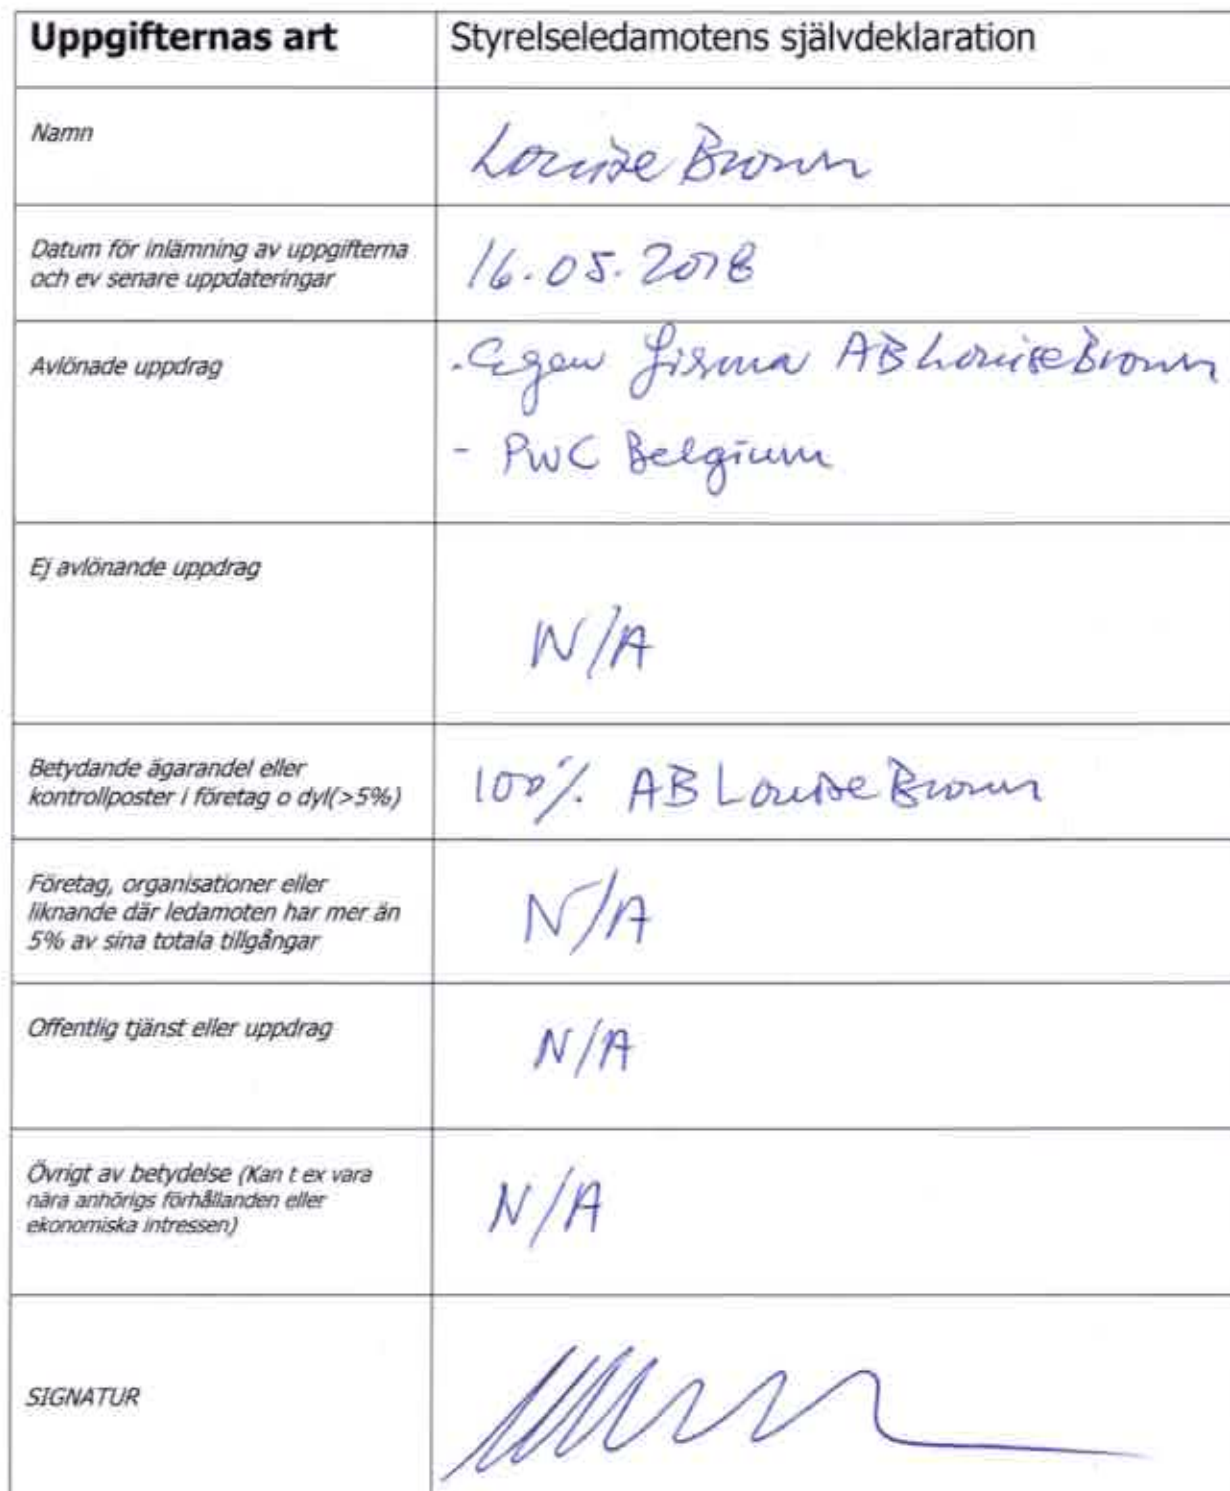 Uppgifternas art
Styrelseledamotens självdeklaration
Namn
Louise Brown
Datum för inlämning av uppgifterna
och ev senare uppdateringar
16.05.2018
Avlönade uppdrag
- Egen firma AB Louise Brown
- PwC Belgium
Ej avlönande uppdrag
N/A
Betydande ägarandel eller
kontrollposter i företag o dyl(>5%)
100% AB Louise Brown
Företag, organisationer eller
liknande där ledamoten har mer än
5% av sina totala tillgångar
N/A
Offentlig tjänst eller uppdrag
N/A
Övrigt av betydelse (Kan t ex vara
nära anhörigs förhållanden eller
ekonomiska intressen)
N/A
SIGNATUR